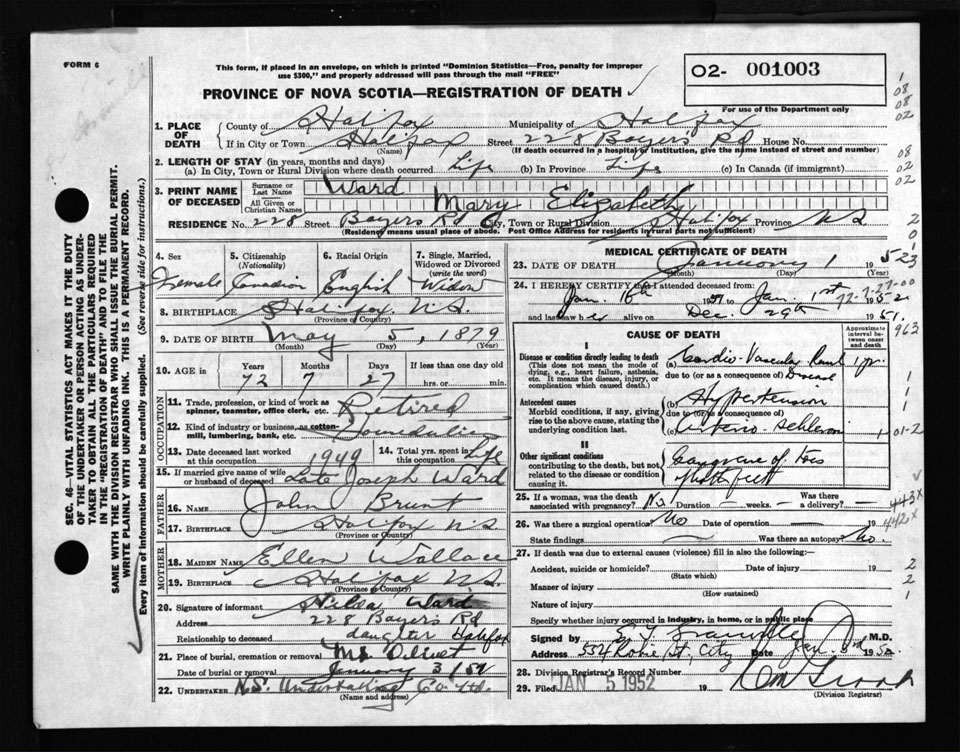 FORM 6
This form, if placed in an envelope, on which is printed "Dominion Statistics—Free, penalty for improper
use $300," and properly addressed will pass through the mail "FREE"
O2- 001003
For use of the Department only
PROVINCE OF NOVA SCOTIA—REGISTRATION OF DEATH
1. PLACE OF DEATH { County of Halifax Municipality of Halifax
If in City or Town Halifax Street 228 Bayers Rd House No.
(Name) (If death occurred in a hospital or institution, give the name instead of street and number)
2. LENGTH OF STAY (in years, months and days)
(a) In City, Town or Rural Division where death occurred Life (b) In Province Life (c) In Canada (if immigrant)
3. PRINT NAME OF DECEASED { Surname or Last Name Ward
All Given or Christian Names Mary Elizabeth
RESIDENCE No. 228 Street Bayers Rd City, Town or Rural Division Halifax Province N S
(Residence means usual place of abode. Post Office Address for residents in rural parts not sufficient)
4. Sex Female
5. Citizenship (Nationality) Canadian
6. Racial Origin English
7. Single, Married, Widowed or Divorced (write the word) Widow
8. BIRTHPLACE Halifax N.S.
(Province or Country)
9. DATE OF BIRTH May 5, 1879
(Month) (Day) (Year)
10. AGE in Years Months Days If less than one day old
72 7 27 hrs. or min.
OCCUPATION
11. Trade, profession, or kind of work as spinner, teamster, office clerk, etc. Retired
12. Kind of industry or business, as cotton-mill, lumbering, bank, etc.
13. Date deceased last worked at this occupation 1949
14. Total yrs. spent in this occupation Life
15. If married give name of wife or husband of deceased Late Joseph Ward
FATHER
16. Name John Brunt
17. Birthplace Halifax N S
(Province or Country)
MOTHER
18. MAIDEN NAME Ellen Wallace
19. BIRTHPLACE Halifax N.S.
(Province or Country)
20. Signature of informant Hilda Ward
Address 228 Bayers Rd
Relationship to deceased daughter Halifax
21. Place of burial, cremation or removal Mt. Olivet
Date of burial or removal January 3/52
22. UNDERTAKER N.S. Undertaking Co Ltd.
(Name and address)
MEDICAL CERTIFICATE OF DEATH
23. DATE OF DEATH January 1 1952
(Month) (Day) (Year)
24. I HEREBY CERTIFY that I attended deceased from:
Jan. 16th 1951 to Jan. 1st 1952
and last saw her alive on Dec. 29th 1951.
CAUSE OF DEATH
Approximate interval between onset and death
I
Disease or condition directly leading to death
(This does not mean the mode of dying, e.g., heart failure, asthenia, etc. It means the disease, injury, or complication which caused death.
(a) Cardio-Vascular Renal 1 yr.
due to (or as a consequence of) Disease
Antecedent causes
Morbid conditions, if any, giving rise to the above cause, stating the underlying condition last.
(b) Hypertension
due to (or as a consequence of)
(c) Arterio-
II
Other significant conditions contributing to the death, but not related to the disease or condition causing it.
Gangrene of toes
feet
25. If a woman, was the death associated with pregnancy? No. Duration — weeks. Was there a delivery? —
26. Was there a surgical operation? No Date of operation — 19
State findings — Was there an autopsy? No.
27. If death was due to external causes (violence) fill in also the following:
Accident, suicide or homicide? Date of injury 19
(State which)
Manner of injury
(How sustained)
Nature of injury
State whether injury occurred in industry, in home, or in public place
Signed by M.D.
Address 534 Robie St, City Date Jan. 3rd 1952
28. Division Registrar's Record Number
29. Filed JAN 5 1952 19
(Division Registrar)
SEC. 46—VITAL STATISTICS ACT MAKES IT THE DUTY
OF THE UNDERTAKER OR PERSON ACTING AS UNDER-
TAKER TO OBTAIN ALL THE PARTICULARS REQUIRED
IN THE "REGISTRATION OF DEATH" AND TO FILE THE
SAME WITH THE DIVISION REGISTRAR WHO SHALL ISSUE THE BURIAL PERMIT.
WRITE PLAINLY WITH UNFADING INK. THIS IS A PERMANENT RECORD.
Every item of information should be carefully supplied. (See reverse side for instructions.)